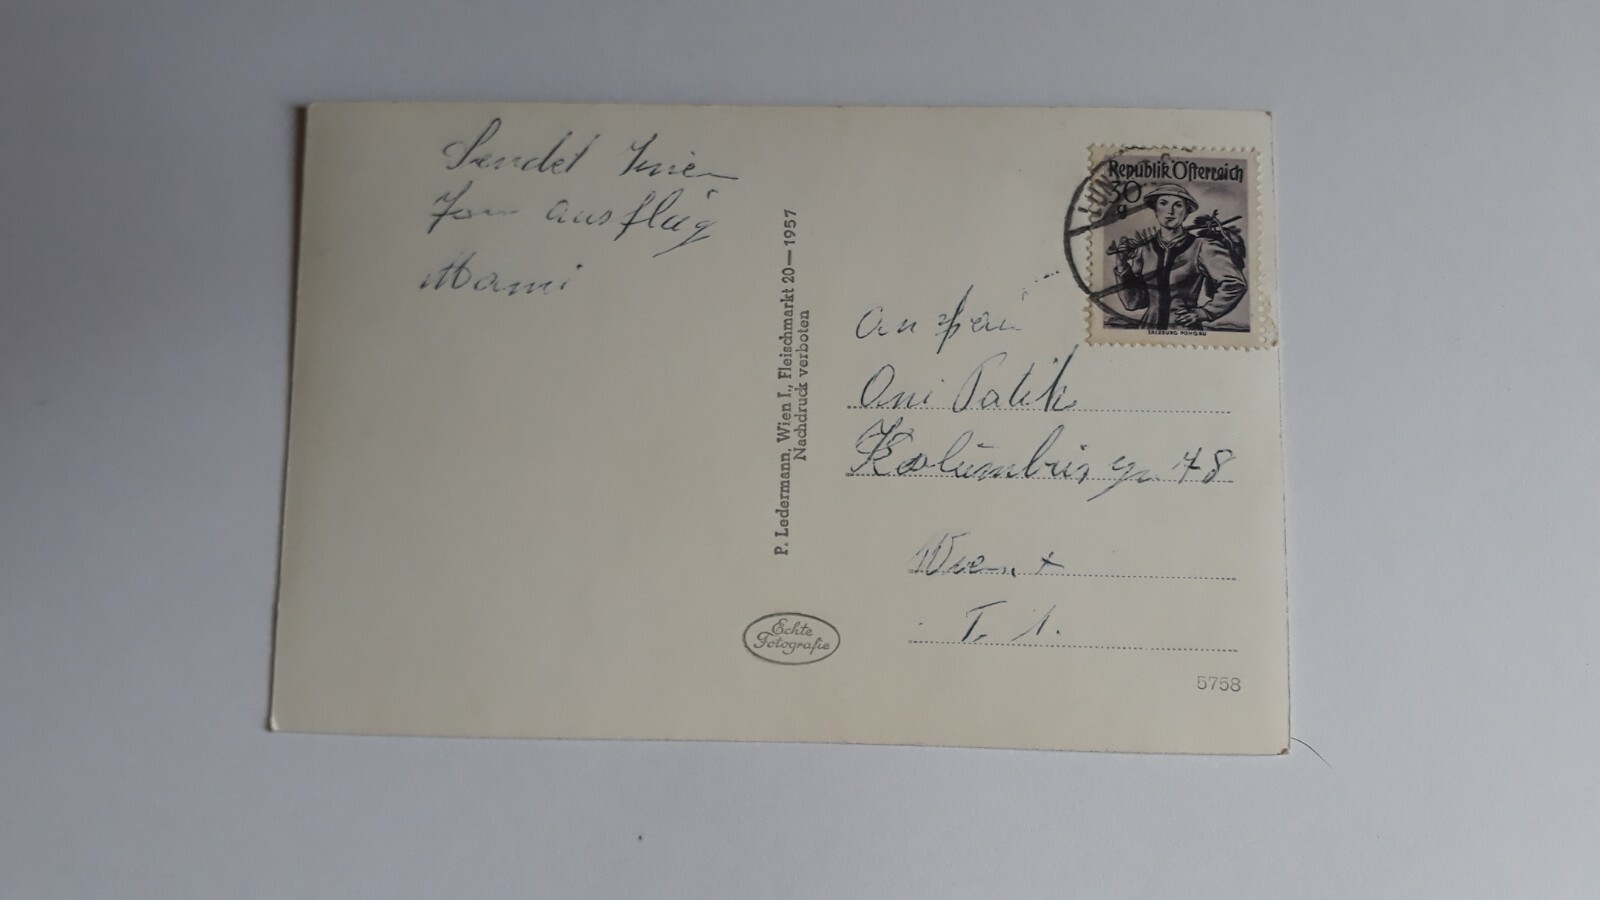 Sendet Ihnen
Vom Ausflug
Mami
P. Ledermann, Wien I., Fleischmarkt 20—1957
Nachdruck verboten
Echte
Fotografie
Republik Österreich
30
g
SALZBURG PONGAU
An Frau
Ani Patik
Kolumbus g. 48
Wien X
T. 1.
5758